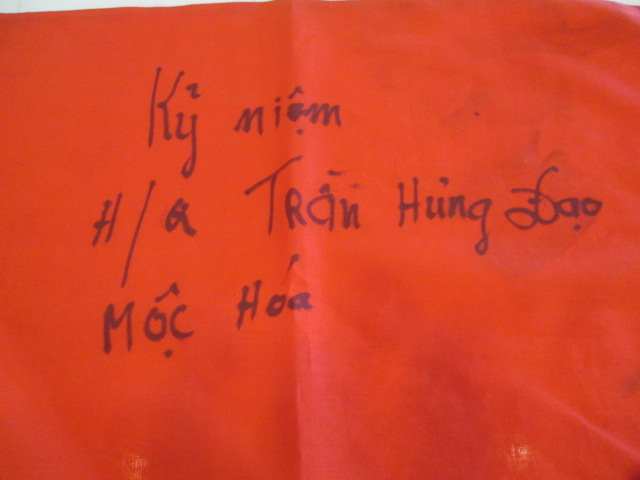 Kỷ niệm
H/a Trần Hưng Đạo
Mộc Hóa